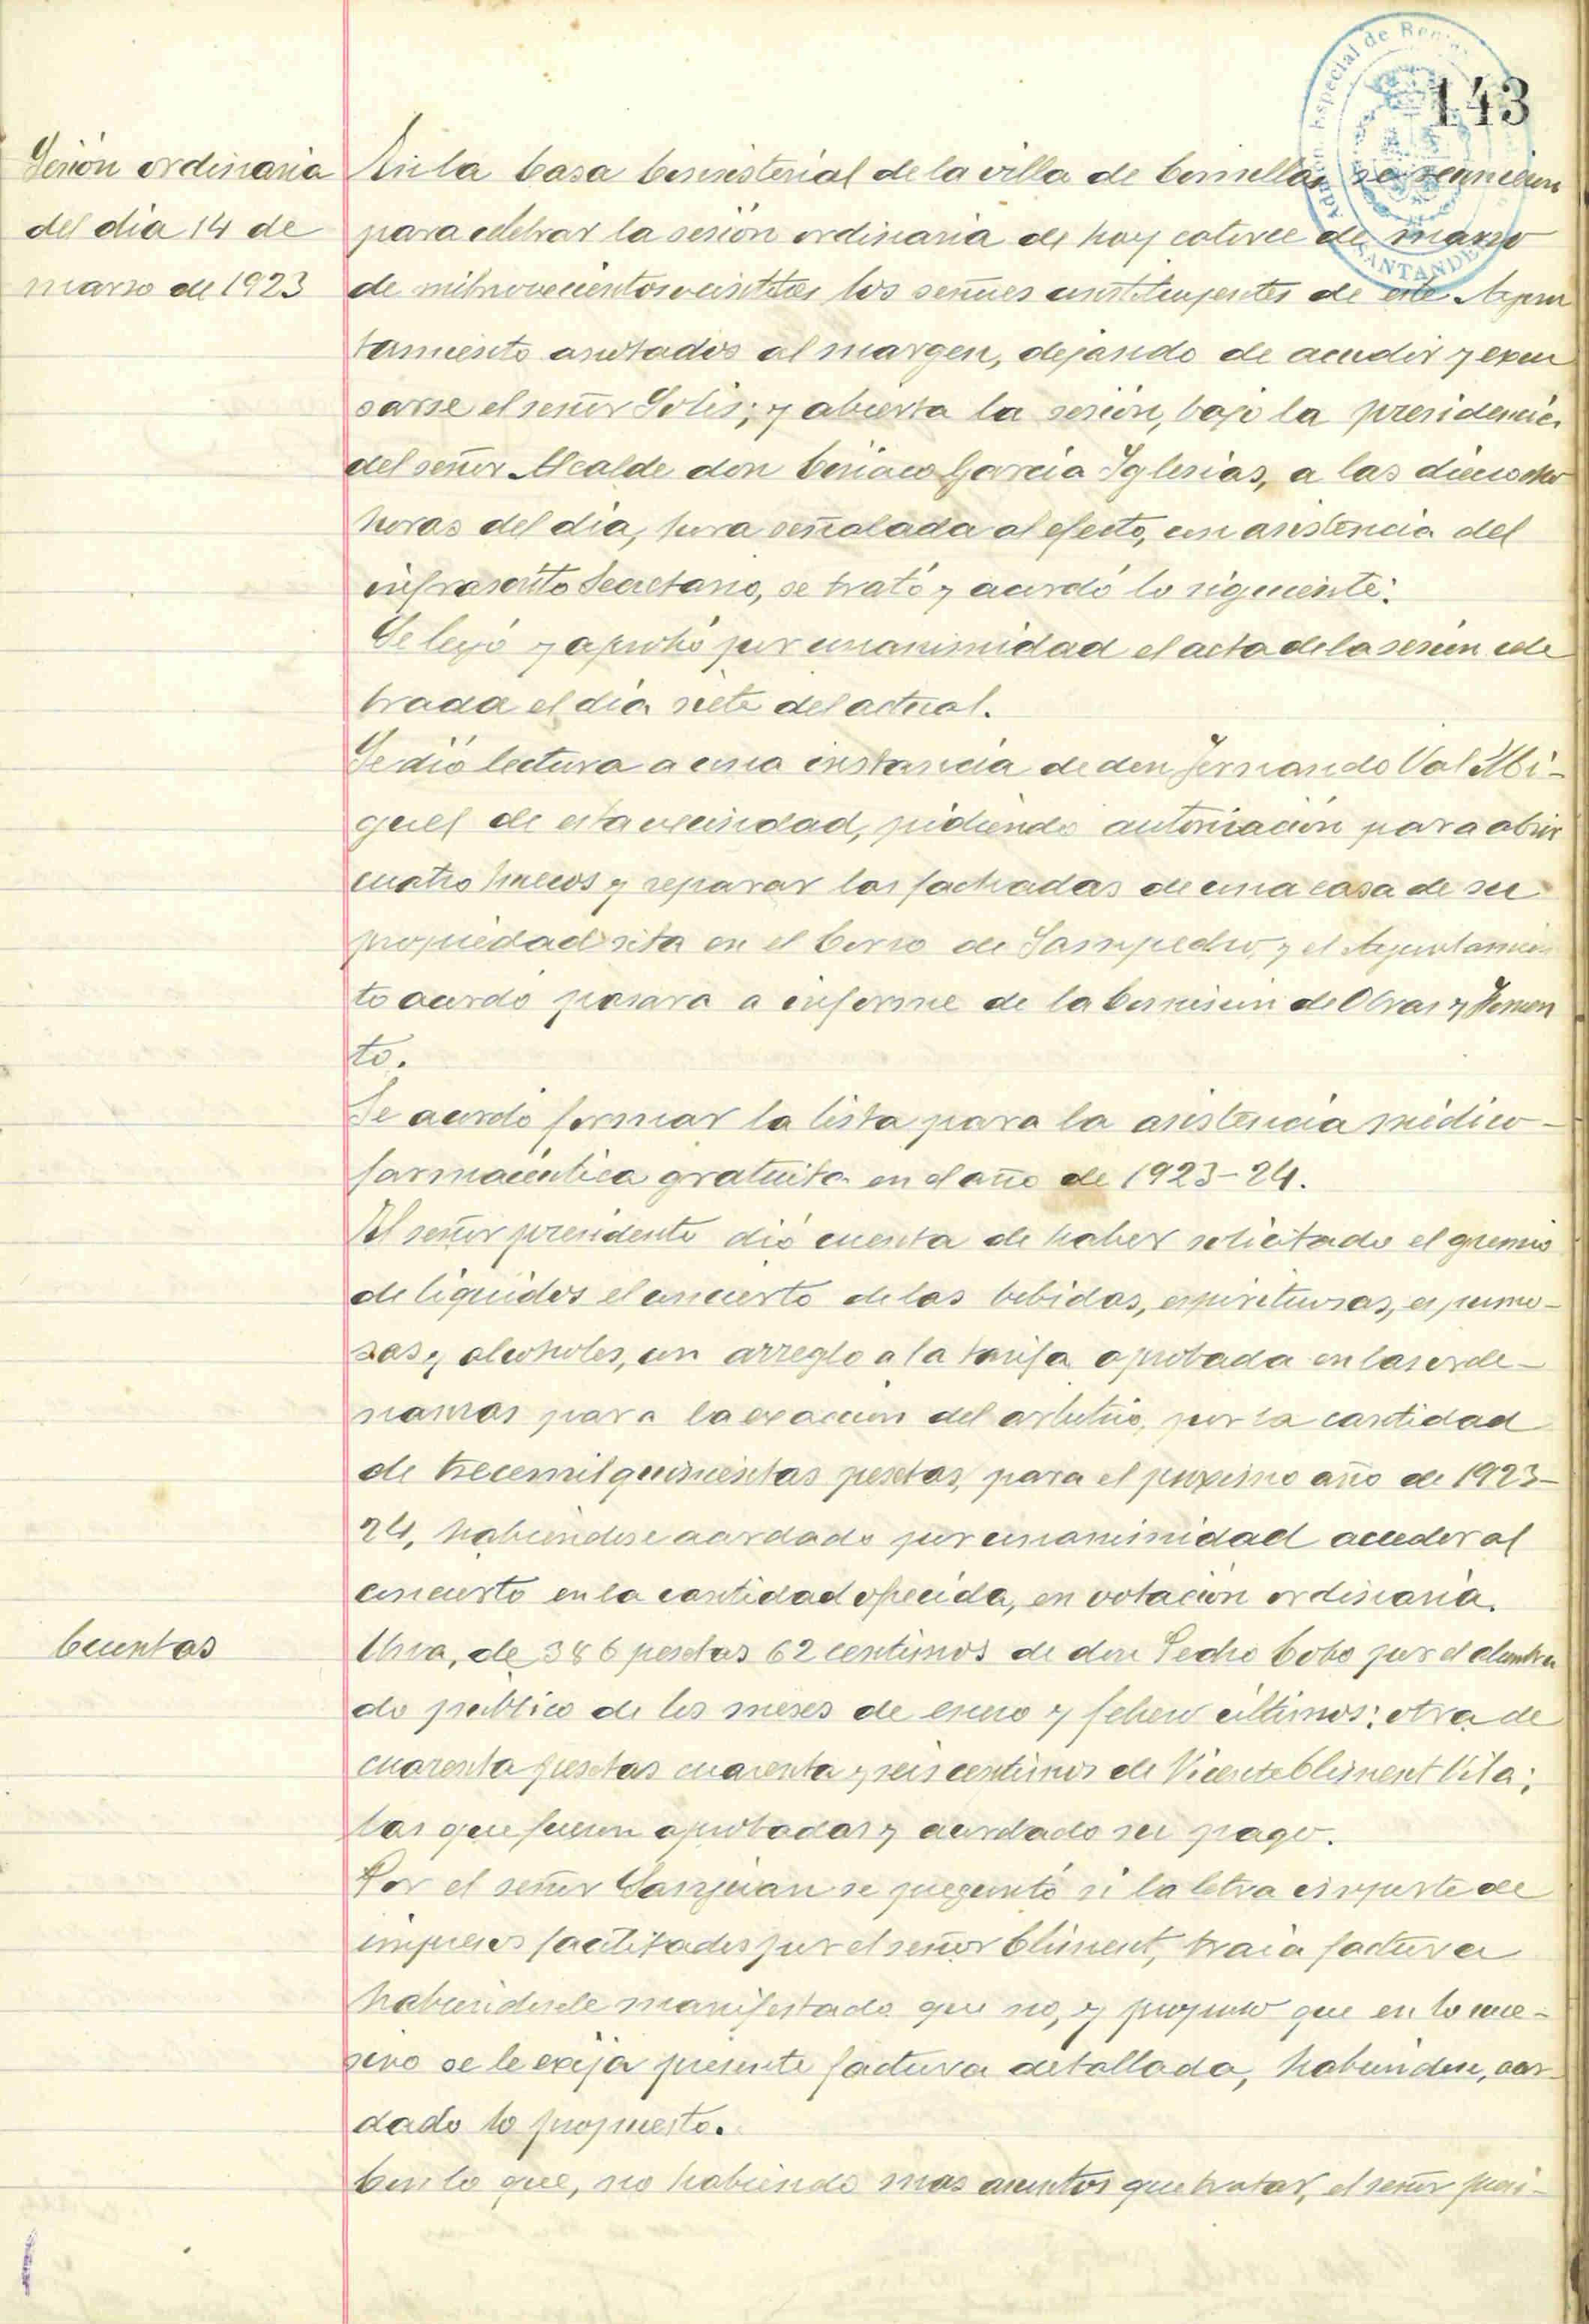 143
Sesión ordinaria
del dia 14 de
marzo de 1923
En la Casa Consistorial de la villa de Comillas se reunieron
para celebrar la sesión ordinaria de hoy catorce de marzo
de mil novecientos veintitres los señores constituyentes de este Ayun
tamiento anotados al margen, dejando de acudir y excu
sarse el señor Solis; y abierta la sesión, bajo la presidencia
del señor Alcalde don Ciriaco Garcia Iglesias, a las dieciocho
horas del dia, hora señalada al efecto, con asistencia del
infrascrito Secretario, se trató y acordó lo siguiente:
Se leyó y aprobó por unanimidad el acta de la sesión cele
brada el dia siete del actual.
Se dió lectura a una instancia de don Fernando Val Mi-
guel de esta vecindad, pidiendo autorización para abrir
cuatro huecos y reparar las fachadas de una casa de su
propiedad sita en el Corro de Sampedro, y el Ayuntamien
to acordó pasara a informe de la Comisión de Obras y Fomen
to.
Se acordó formar la lista para la asistencia médico-
farmacéutica gratuita en el año de 1923-24.
El señor presidente dió cuenta de haber solicitado el gremio
de liquidos el concierto de las bebidas, espirituosas, espumo-
sas y alcoholes, con arreglo a la tarifa aprobada en las orde-
nanzas para la exacción del arbitrio, por la cantidad
de trece mil quinientas pesetas, para el proximo año de 1923-
24, habiendose acordado por unanimidad acceder al
concierto en la cantidad ofrecida, en votación ordinaria.
Cuentas
Una, de 386 pesetas 62 centimos de don Pedro Cobo por el alumbra
do publico de los meses de enero y febrero últimos; otra de
cuarenta pesetas cuarenta y seis centimos de Vicente Climent Vila;
las que fueron aprobadas y acordado su pago.
Por el señor Sanjuan se preguntó si la letra importe de
impresos facilitados por el señor Climent, traia factura
habiendosele manifestado que no, y propuso que en lo suce-
sivo se le exija presente factura detallada, habiendose, acor
dado lo propuesto.
Con lo que, no habiendo mas asuntos que tratar, el señor presi-